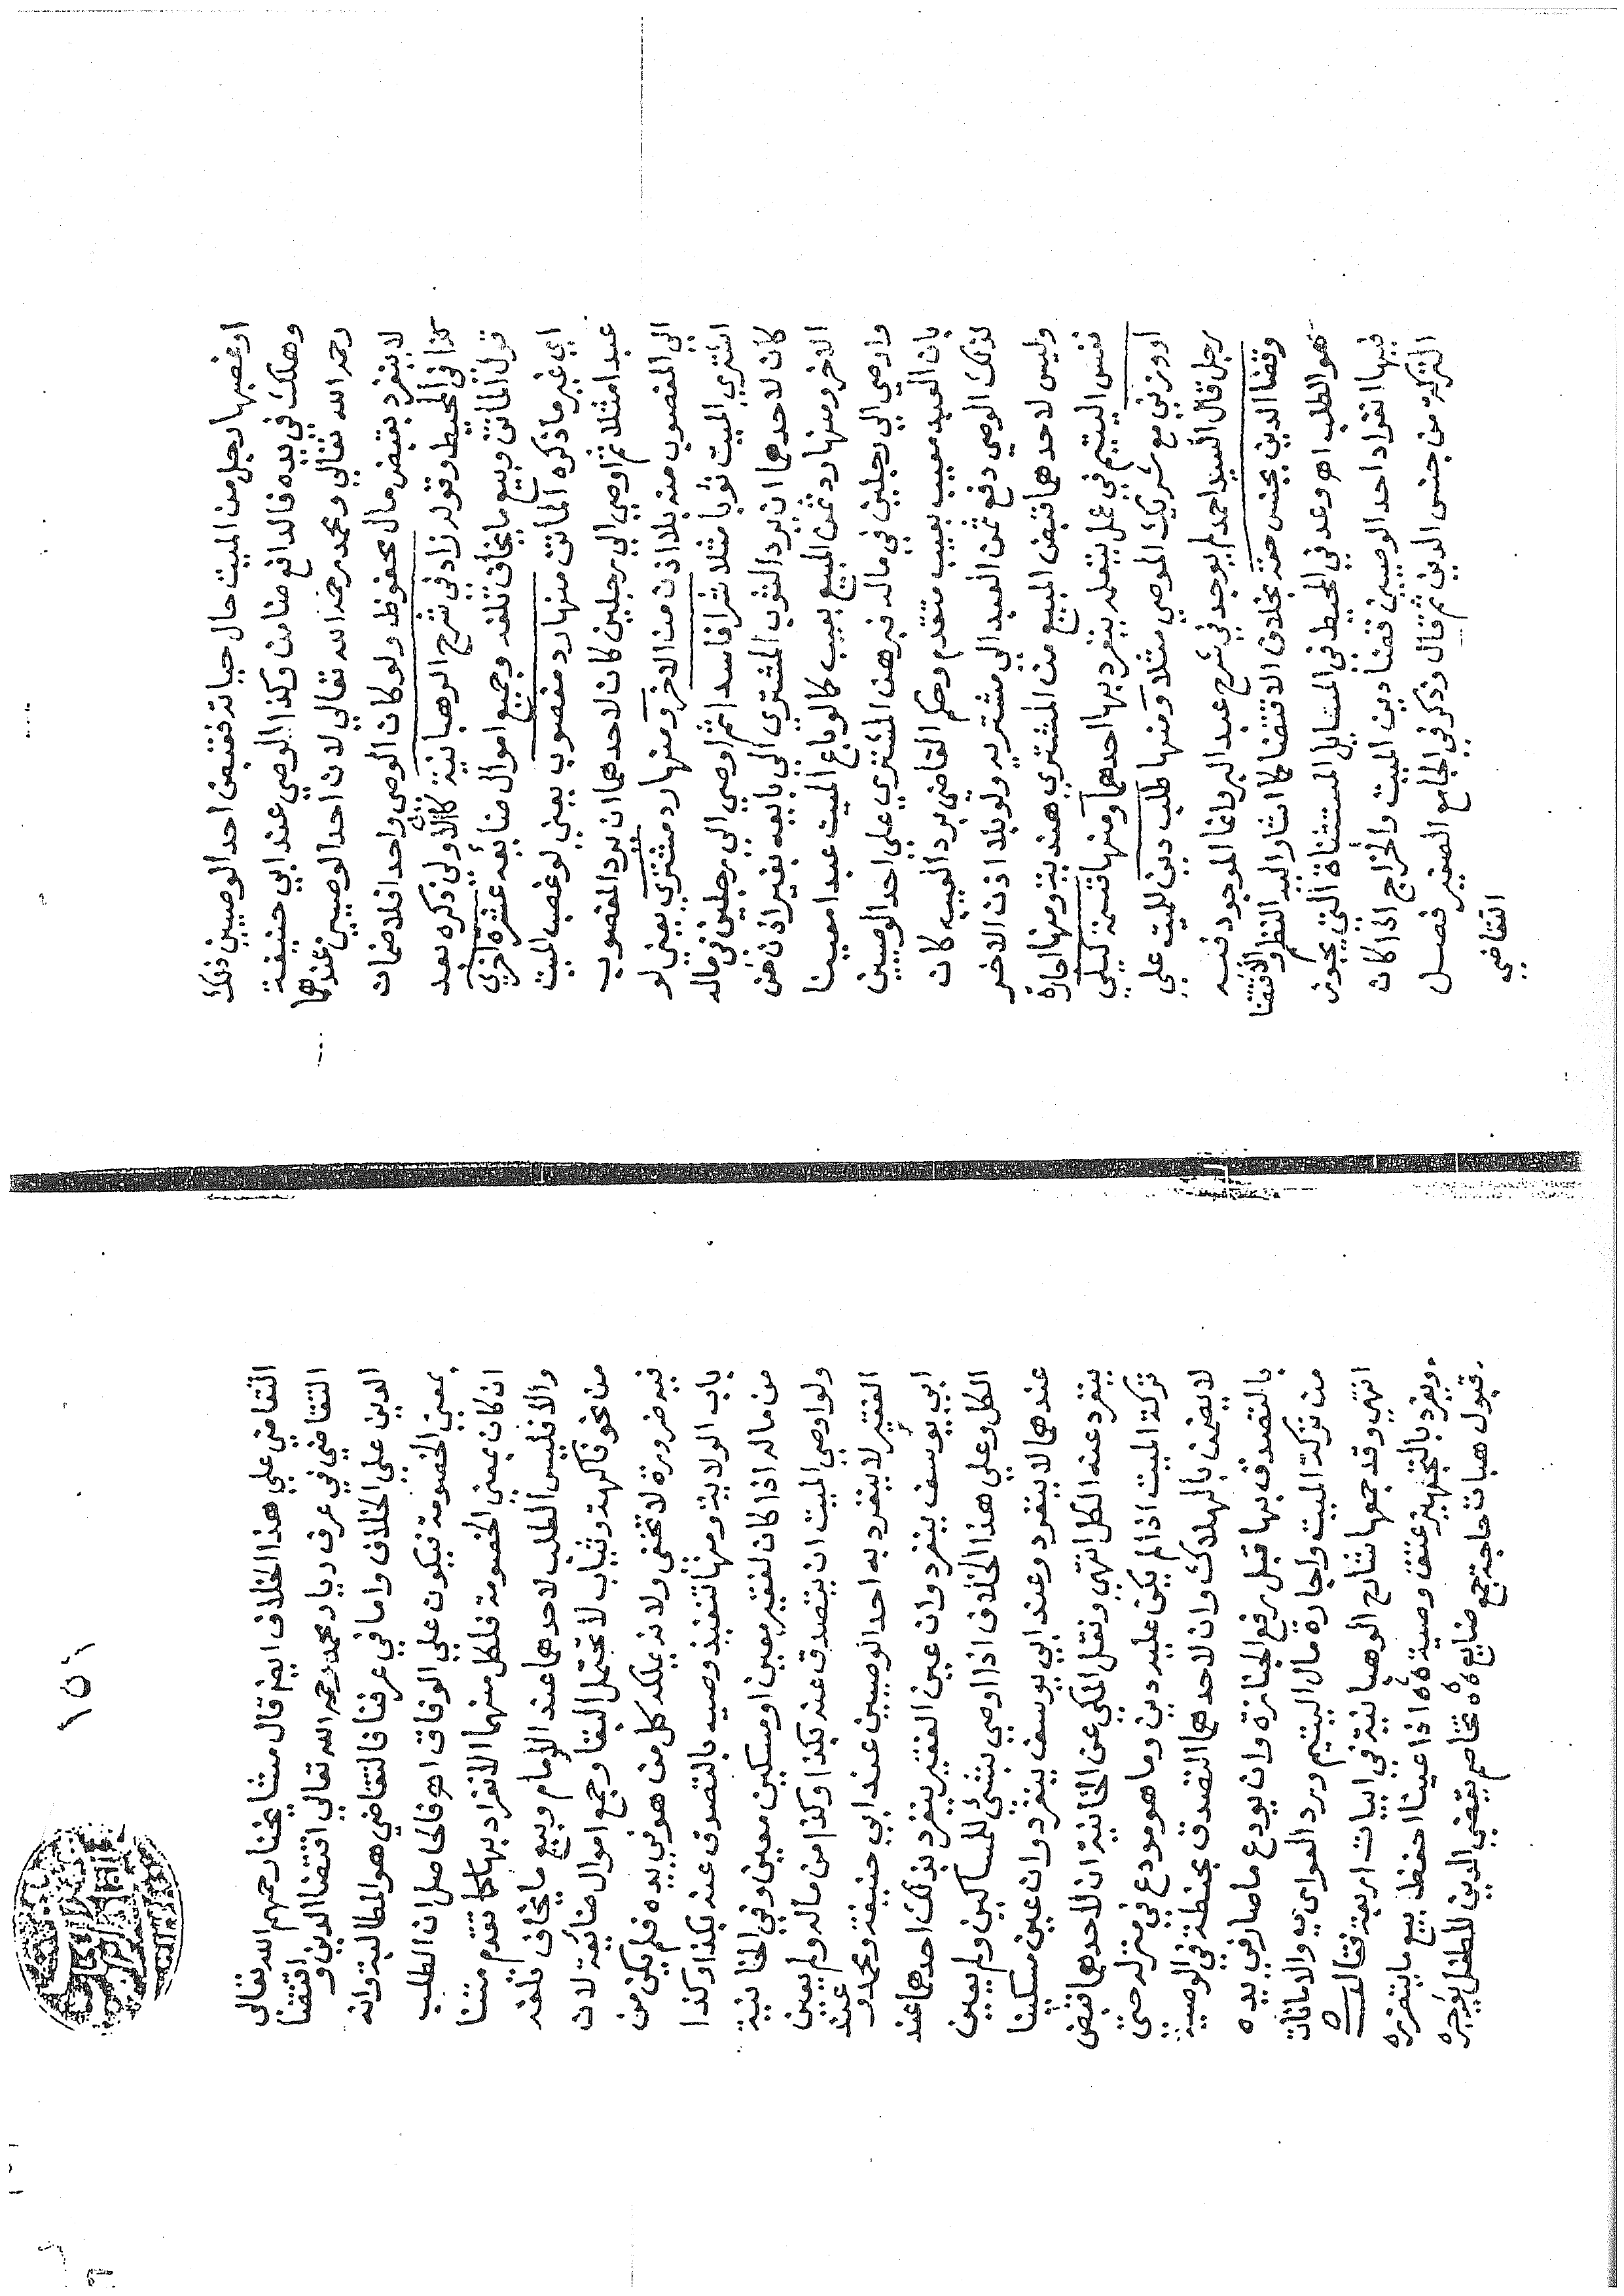 اوغصبها رجل من الميت حال حياته فقبض احد الوصيين ذلك
وهلك في يده فالدافع ضامن وكذا الوصي عند ابي حنيفة
رحمه الله تعالي ومحمد رحمه الله تعالي لان احد الوصيين عندهما
لا ينفرد بقبض مال محفوظ ولو كان الوصي واحدا فلا ضمان
كذا في المحيط وقوله زاد في شرح الوهبانية كالاولى ذكره بعد
قول الماتن وبيع ما يخاف تلفه وجميع اموال ضايعه عشرة اخري
اي غير ما ذكره الماتن منها رد مغصوب يعني لو غصب الميت
عبدا مثلا ثم اوصي الي رجلين كان لاحدهما ان يرد المغصوب
الي المغصوب منه بلا اذن من الاخر ومنها رد مشتري يعني لو
اشتري الميت ثوبا مثلا شرا فاسدا ثم اوصي الي رجلين في ماله
كان لاحدهما ان يرد الثوب المشتري الي بايعه بغير اذن من
الاخر ومنها رد ثمن المبيع بعيب كما لو باع الميت عبدا معينا
واوصي الي رجلين في ماله فبرهن المشتري علي احد الوصيين
بان العبد معيب بعيب متقدم وحكم القاضي برد العيب كان
لذلك الوصي دفع ثمن العبد الي مشتريه ولو بلا اذن الاخر
وليس لاحدهما قبض المبيع من المشتري هنديه ومنها اجارة
نفس اليتيم في عمل يتعلمه ينفرد بها احدهما ومنها قسمة كيلي
او وزني مع شريك الموصي مثلا ومنها طلب دين للميت علي
رجل قال السيد احمد لم يوجد في شرح عبد البر وانما الموجود فيه
وقضا الدين بجنس حقه بخلاف الاقتضا كما اشار اليه النظم والاقتضا
هو الطلب اهر وعد في المحيط في المسايل المستثناة التي يجوز
فيها انفراد احد الوصيين قضا دين الميت والخراج اذا كان
التركة من جنس الدين ثم قال وذكر في الجامع الصغير فصل
القاضي
١٥١
القاضي علي هذا الخلاف ايضا قال مشايخنا رحمهم الله تعالى
التقاضي في عرف ديار محمد رحمه الله تعالي اقتضا الدين واقتضا
الدين علي الخلاف واما في عرفنا فالتقاضي هو المطالبة وانه
بمعني الخصومة فيكون علي الوفاق اهر فالحاصل ان الطلب
ان كان بمعني الخصومة فلكل منهما الانفراد بها كما تقدم متنا
والا فليس الطلب لاحدهما عند الامام وبيع ما يخاف تلفه
من نحو فاكهة وثياب لا تحتمل البقا وجمع اموال ضائعة لان
فيه ضرورة لا تخفى ولانه يملكه كل من هو في يده فلم يكن من
باب الولاية ومنها تنفيذ وصيه بالتصدق عنه بكذا وكذا
من ماله اذا كان لفقير معين او مسكين معين وفي الخانية
ولو اوصي الميت ان يتصدق عنه بكذا وكذا من ماله ولم يعين
الفقير لا ينفرد به احد الوصيين عند ابي حنيفة ومحمد وعند
ابي يوسف ينفرد وان عين الفقير ينفرد بذلك احدهما عند
الكل وعلي هذا الخلاف اذا اوصي بشئ للمساكين ولم يعين
عندهما لا ينفرد وعند ابي يوسف ينفرد وان عين مسكينا
ينفرد عنه الكل انتهي ونقل المكي عن الخانية ان لاحدهما قبض
تركة الميت اذا لم يكن عليه دين وما هو مودع في منزله حتي
لا يضمن بالهلاك وان لاحدهما التصدق بحنطة في الوصية
بالتصدق بها قبل رفع الجنازة وان يودع ما صار في يده
من تركة الميت واجارة مال اليتيم ويرد العواري والامانات
انتهي وقد جمعها شارح الوهبانية في ابيات اربعة فقال
وينفرد بالتجهيز عتق وصية ه اذا عينا احفظ بيع ما يتغيره
قبول هبات حاجة جمع ضايع ه تخاصم يقضي الدين للطفل يؤجره